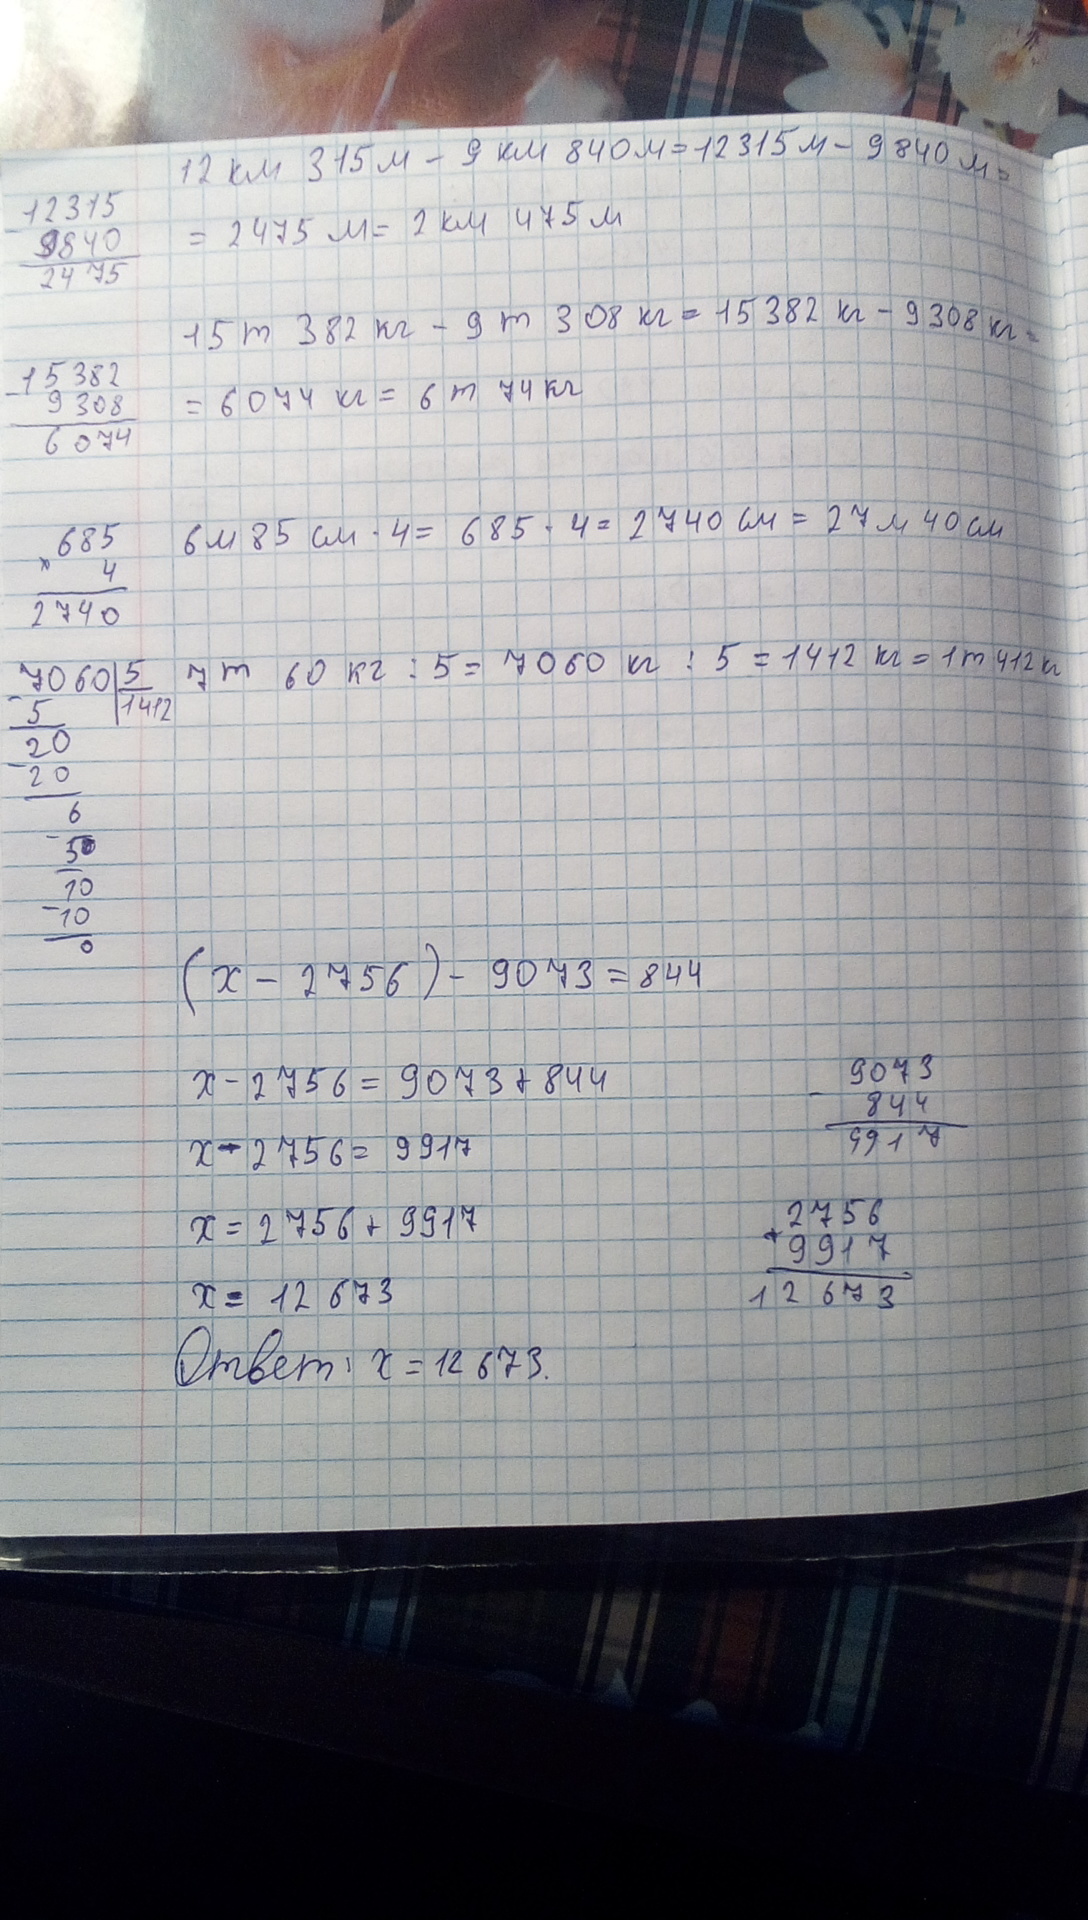 12 км 315 м - 9 км 840 м = 12315 м - 9840 м =
12315
- 9840
2475
= 2475 м = 2 км 475 м
15 т 382 кг - 9 т 308 кг = 15382 кг - 9308 кг =
- 15382
9308
6074
= 6074 кг = 6 т 74 кг
685
× 4
2740
6 м 85 см · 4 = 685 · 4 = 2740 см = 27 м 40 см
7060 5
7 т 60 кг : 5 = 7060 кг : 5 = 1412 кг = 1 т 412 кг
- 5 1412
20
- 20
6
- 5
10
- 10
0
(x - 2756) - 9073 = 844
x - 2756 = 9073 + 844
x - 2756 = 9917
x = 2756 + 9917
x = 12673
9073
- 844
9917
2756
+ 9917
12673
Ответ: x = 12673.